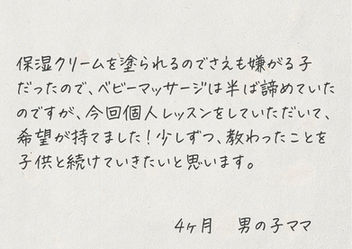 保湿クリームを塗られるのでさえも嫌がる子
だったので、ベビーマッサージは半ば諦めていた
のですが、今回個人レッスンをしていただいて、
希望が持てました！少しずつ、教わったことを
子供と続けていきたいと思います。
4ヶ月　男の子ママ